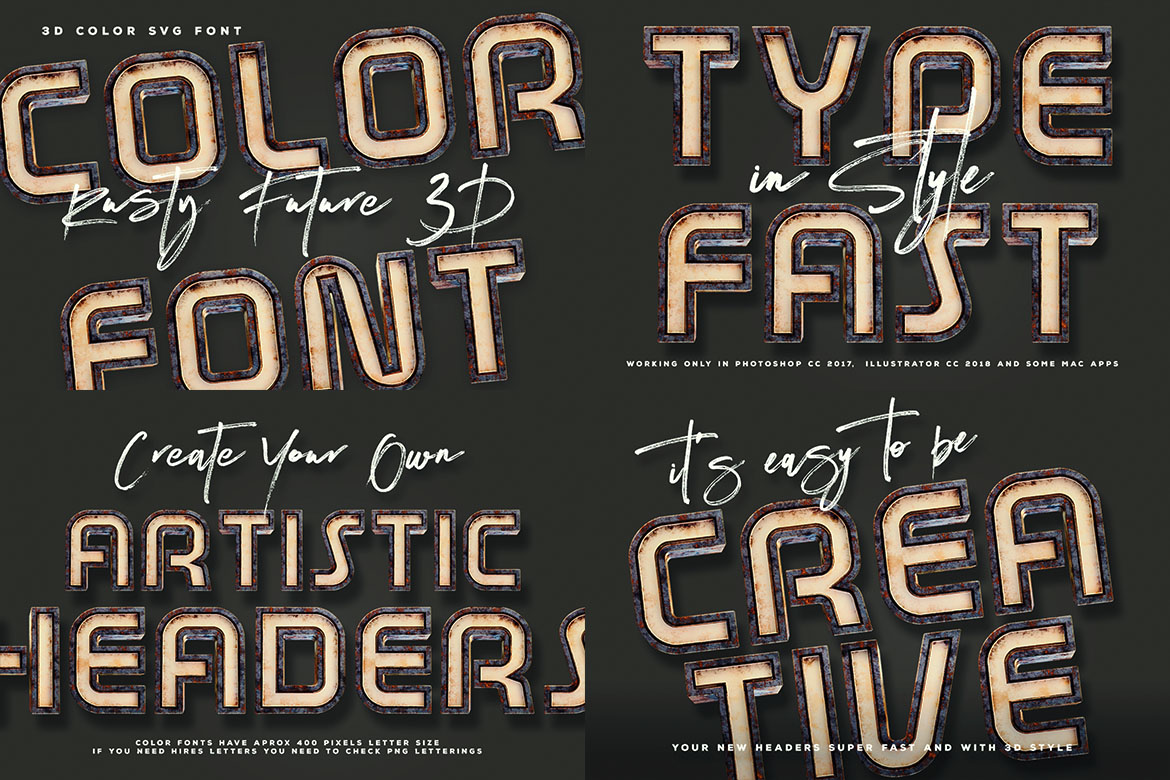 3D COLOR SVG FONT
COLOR
Rusty Future 3D
FONT
TYPE
in Style
FAST
WORKING ONLY IN PHOTOSHOP CC 2017, ILLUSTRATOR CC 2018 AND SOME MAC APPS
Create Your Own
ARTISTIC
HEADERS
COLOR FONTS HAVE APROX 400 PIXELS LETTER SIZE
IF YOU NEED HIRES LETTERS YOU NEED TO CHECK PNG LETTERINGS
it's easy to be
CREA
TIVE
YOUR NEW HEADERS SUPER FAST AND WITH 3D STYLE